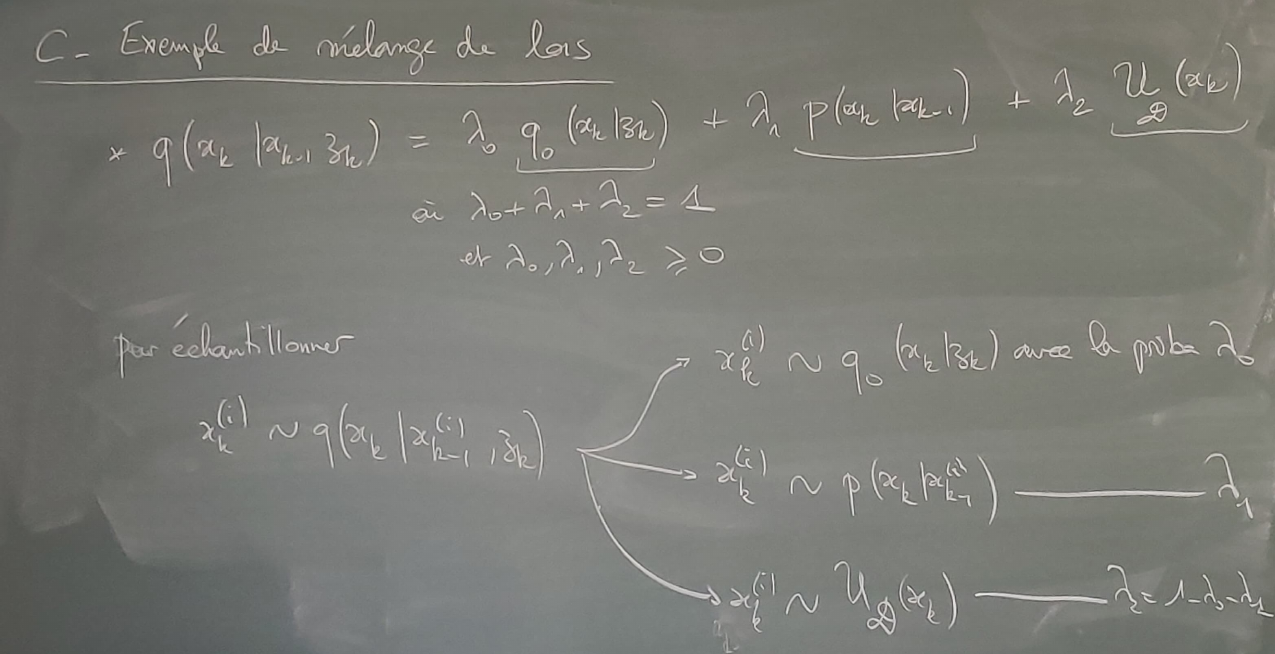 C - Exemple de mélange de lois
* q(x_k | x_{k-1}, z_k) = λ_0 q_0(x_k | z_k) + λ_1 p(x_k | x_{k-1}) + λ_2 U_D(x_k)
où λ_0 + λ_1 + λ_2 = 1
et λ_0, λ_1, λ_2 ≥ 0
pour échantillonner
x_k^{(i)} ~ q_0(x_k | z_k) avec la proba λ_0
x_k^{(i)} ~ q(x_k | x_{k-1}^{(i)}, z_k)
x_k^{(i)} ~ p(x_k | x_{k-1}^{(i)}) ——— λ_1
x_k^{(i)} ~ U_D(x_k) ——— λ_2 = 1 - λ_0 - λ_1